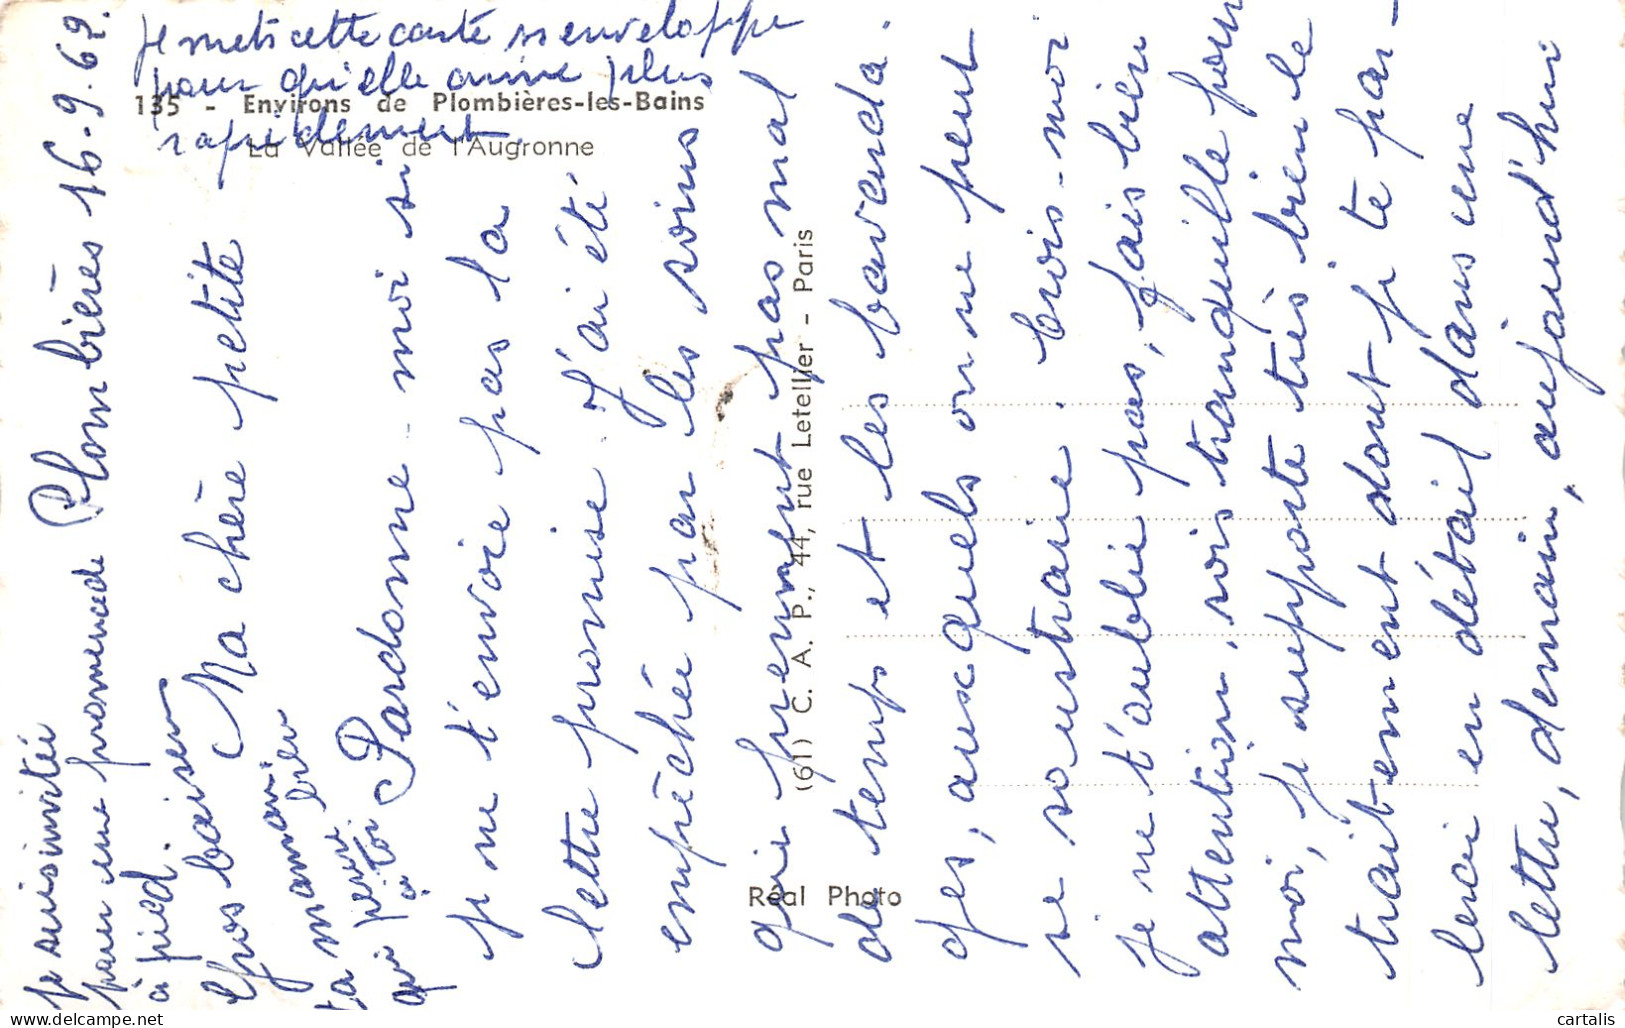 Je mets cette carte s enveloppe
pour qu'elle arrive plus
rapidement
135 - Environs de Plombières-les-Bains
La Vallée de l'Augronne
Plombières 16.9.62.
Ma chère petite
Pardonne-moi si
je ne t'envoie pas la
lettre promise. J'ai été
empêchée par les soins
qui prennent pas mal
de temps et les bavarda.
ges, auxquels on ne peut
se soustraire. Crois-moi
je ne t'oublie pas, fais bien
attention, sois tranquille pour
moi, je supporte très bien le
traitement dont je te par-
lerai en détail dans une
lettre, demain, aujourd'hui
je suis invitée
pour une promenade
à pied.
Gros baisers
Ta maman
qui pense bien
à toi
(61) C. A. P., 44, rue Letellier - Paris
Réal Photo
cartalis